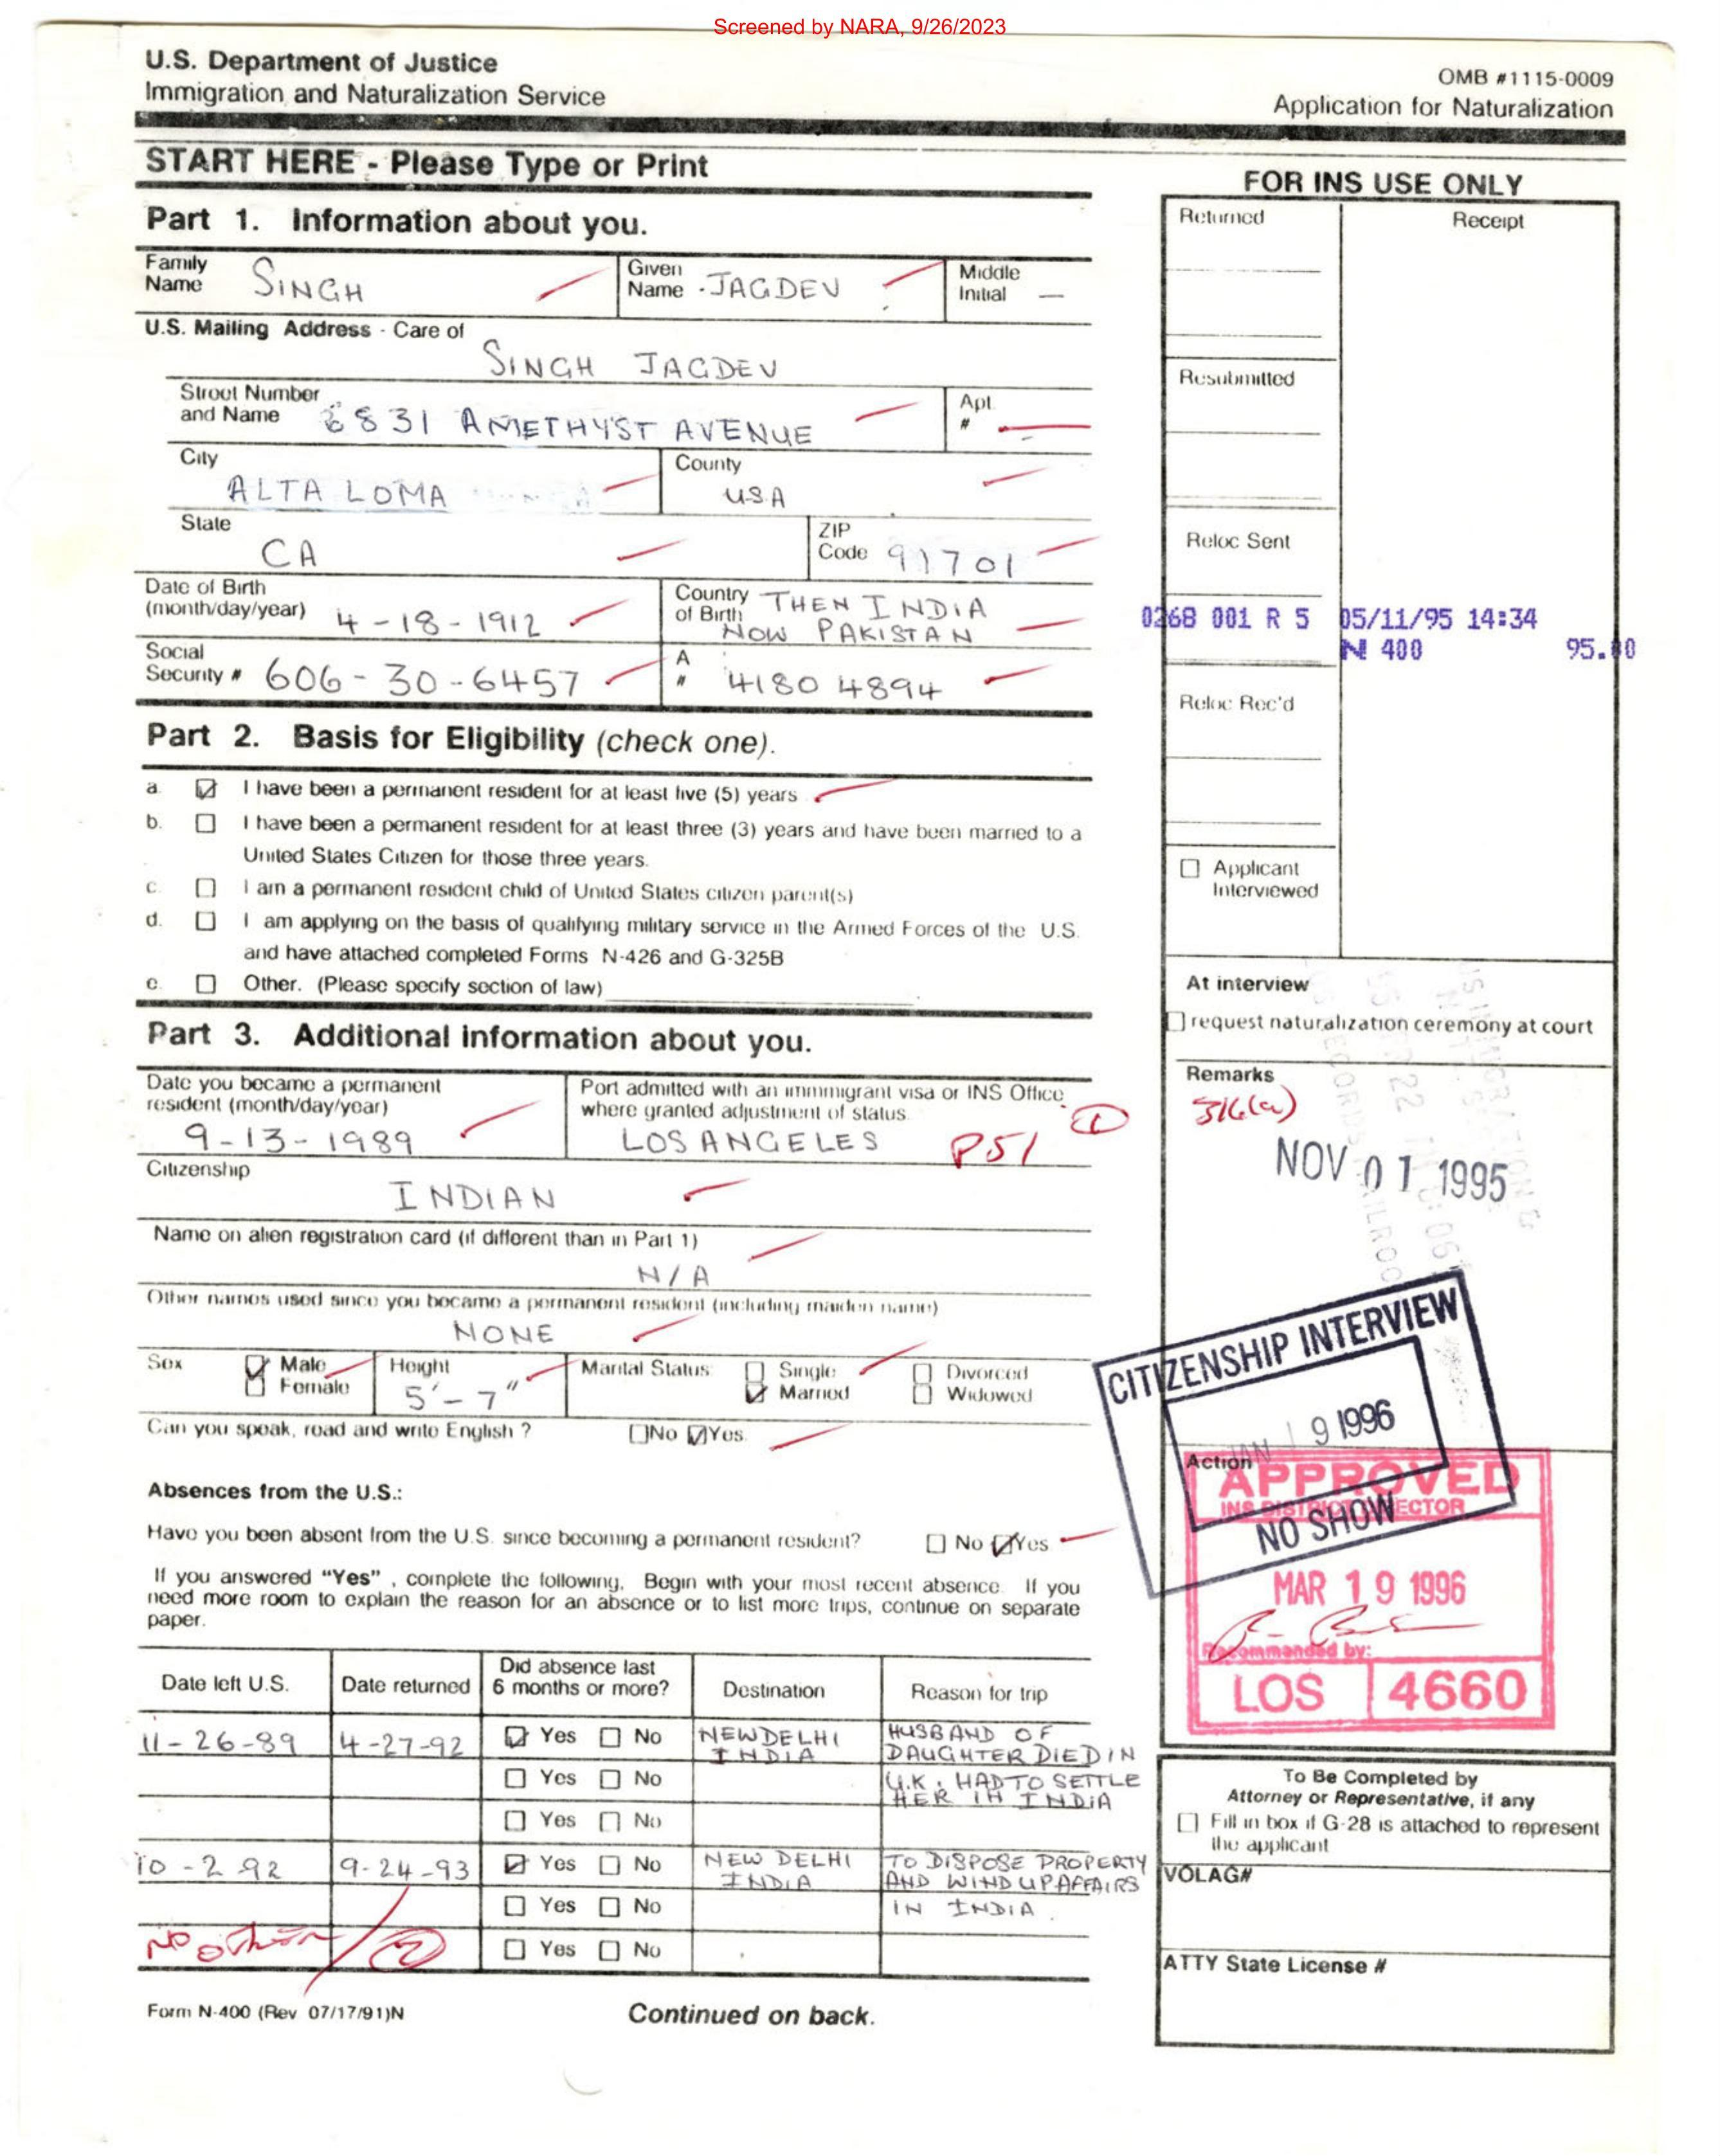 Screened by NARA, 9/26/2023
U.S. Department of Justice
Immigration and Naturalization Service
OMB #1115-0009
Application for Naturalization
START HERE - Please Type or Print
Part 1. Information about you.
Family Name SINGH
Given Name JAGDEV
Middle Initial —
U.S. Mailing Address - Care of
SINGH JAGDEV
Street Number and Name 6831 AMETHYST AVENUE
Apt. #
City ALTA LOMA
County USA
State CA
ZIP Code 91701
Date of Birth (month/day/year) 4-18-1912
Country of Birth THEN INDIA
NOW PAKISTAN
Social Security # 606-30-6457
A # 4180 4894
Part 2. Basis for Eligibility (check one).
a. I have been a permanent resident for at least five (5) years
b. I have been a permanent resident for at least three (3) years and have been married to a
United States Citizen for those three years.
c. I am a permanent resident child of United States citizen parent(s)
d. I am applying on the basis of qualifying military service in the Armed Forces of the U.S.
and have attached completed Forms N-426 and G-325B
e. Other. (Please specify section of law)
Part 3. Additional information about you.
Date you became a permanent
resident (month/day/year)
9-13-1989
Port admitted with an immmigrant visa or INS Office
where granted adjustment of status.
LOS ANGELES P51 1
Citizenship
INDIAN
Name on alien registration card (if different than in Part 1)
N/A
Other names used since you became a permanent resident (including maiden name)
NONE
Sex Male Female
Height 5'-7"
Marital Status: Single Married Divorced Widowed
Can you speak, read and write English ? No Yes.
Absences from the U.S.:
Have you been absent from the U.S. since becoming a permanent resident? No Yes
If you answered "Yes" , complete the following, Begin with your most recent absence. If you
need more room to explain the reason for an absence or to list more trips, continue on separate
paper.
Date left U.S. Date returned Did absence last 6 months or more? Destination Reason for trip
11-26-89 4-27-92 Yes No NEW DELHI INDIA HUSBAND OF DAUGHTER DIED IN
Yes No U.K. HAD TO SETTLE HER IN INDIA
Yes No
10-2-92 9-24-93 Yes No NEW DELHI INDIA TO DISPOSE PROPERTY AND WIND UP AFFAIRS
Yes No IN INDIA.
No other 2 Yes No
Form N-400 (Rev 07/17/91)N
Continued on back.
FOR INS USE ONLY
Returned
Receipt
Resubmitted
Reloc Sent
0268 001 R 5 05/11/95 14:34
N 400 95.00
Reloc Rec'd
Applicant
Interviewed
At interview
request naturalization ceremony at court
Remarks
316(a)
NOV 01 1995
CITIZENSHIP INTERVIEW
JAN 19 1996
NO SHOW
Action
APPROVED
INS DISTRICT DIRECTOR
MAR 19 1996
Recommended by:
LOS 4660
To Be Completed by
Attorney or Representative, if any
Fill in box if G-28 is attached to represent
the applicant
VOLAG#
ATTY State License #